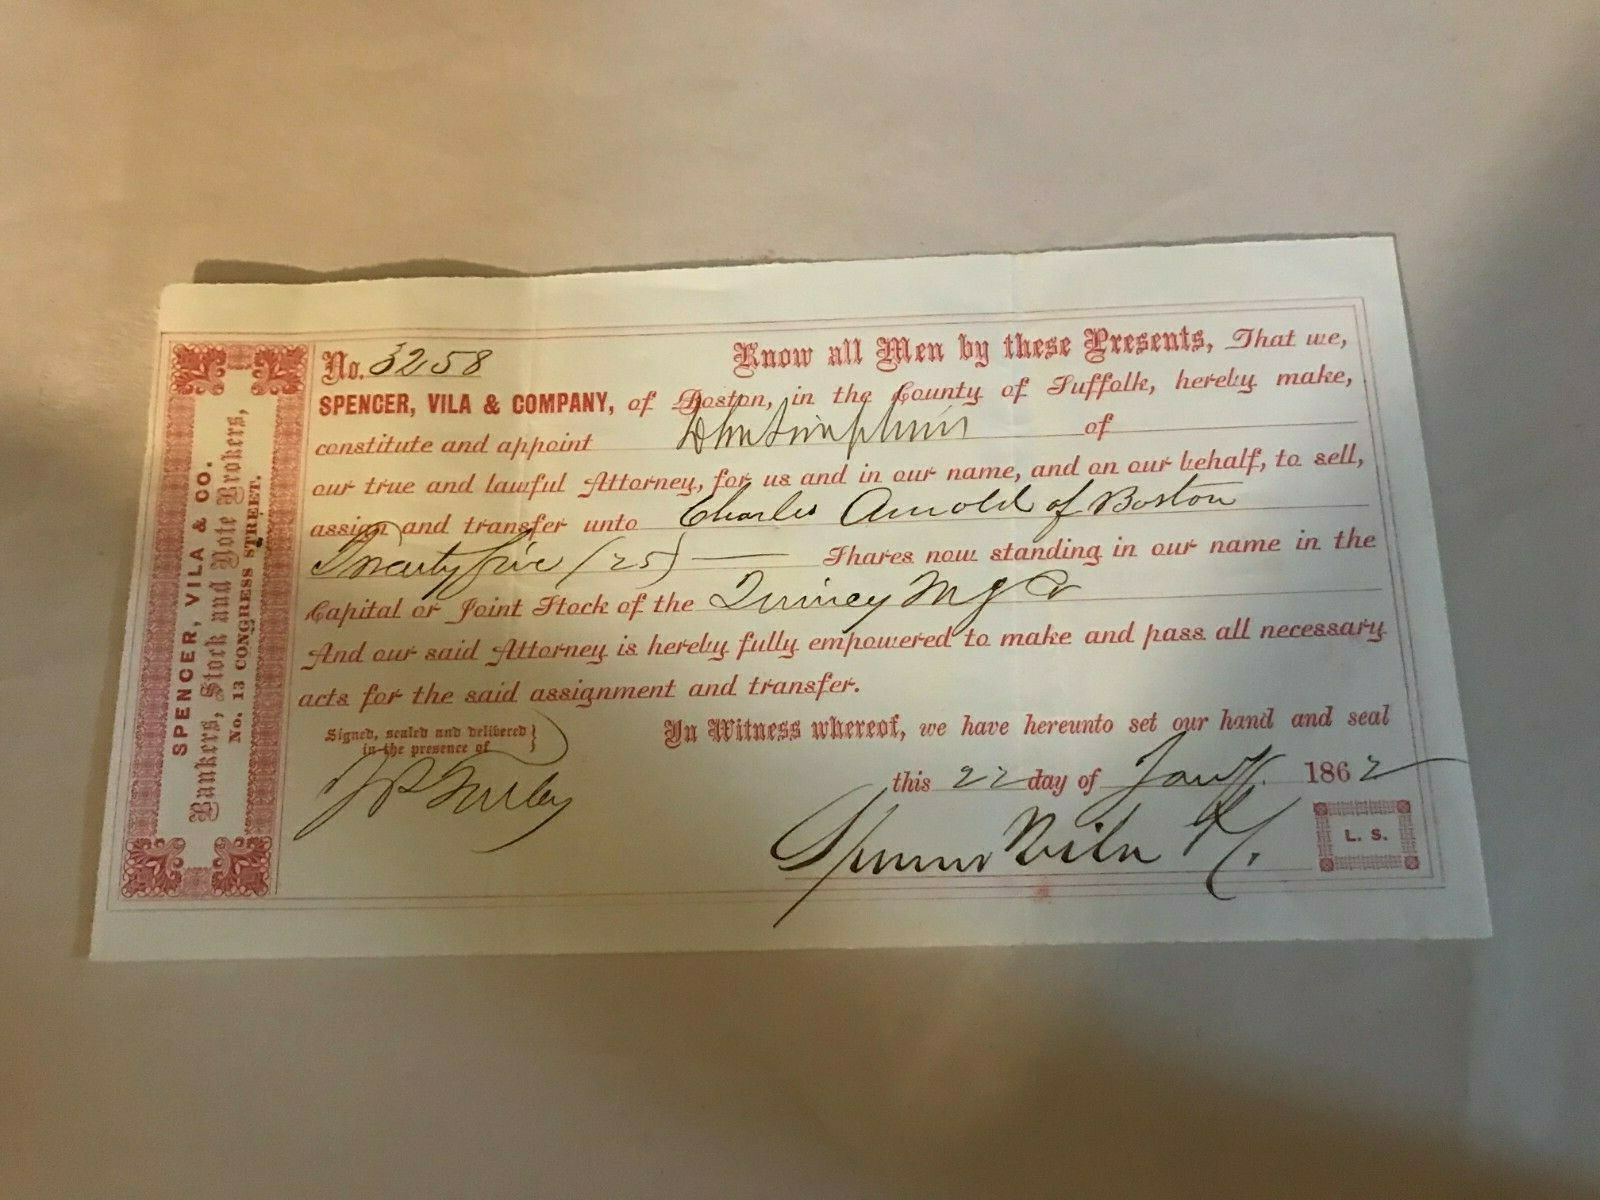 SPENCER, VILA & CO.
Bankers, Stock and Note Brokers,
No. 13 CONGRESS STREET.
No. 3258 Know all Men by these Presents, That we,
SPENCER, VILA & COMPANY, of Boston, in the County of Suffolk, hereby make,
constitute and appoint John Simpkins of
our true and lawful Attorney, for us and in our name, and on our behalf, to sell,
assign and transfer unto Charles Arnold of Boston
Twenty five (25) Shares now standing in our name in the
Capital or Joint Stock of the Quincy Mg Co
And our said Attorney is hereby fully empowered to make and pass all necessary
acts for the said assignment and transfer.
Signed, sealed and delivered }
in the presence of
In Witness whereof, we have hereunto set our hand and seal
this 22 day of Jany. 1862
Spencer Vila & Co.
L. S.